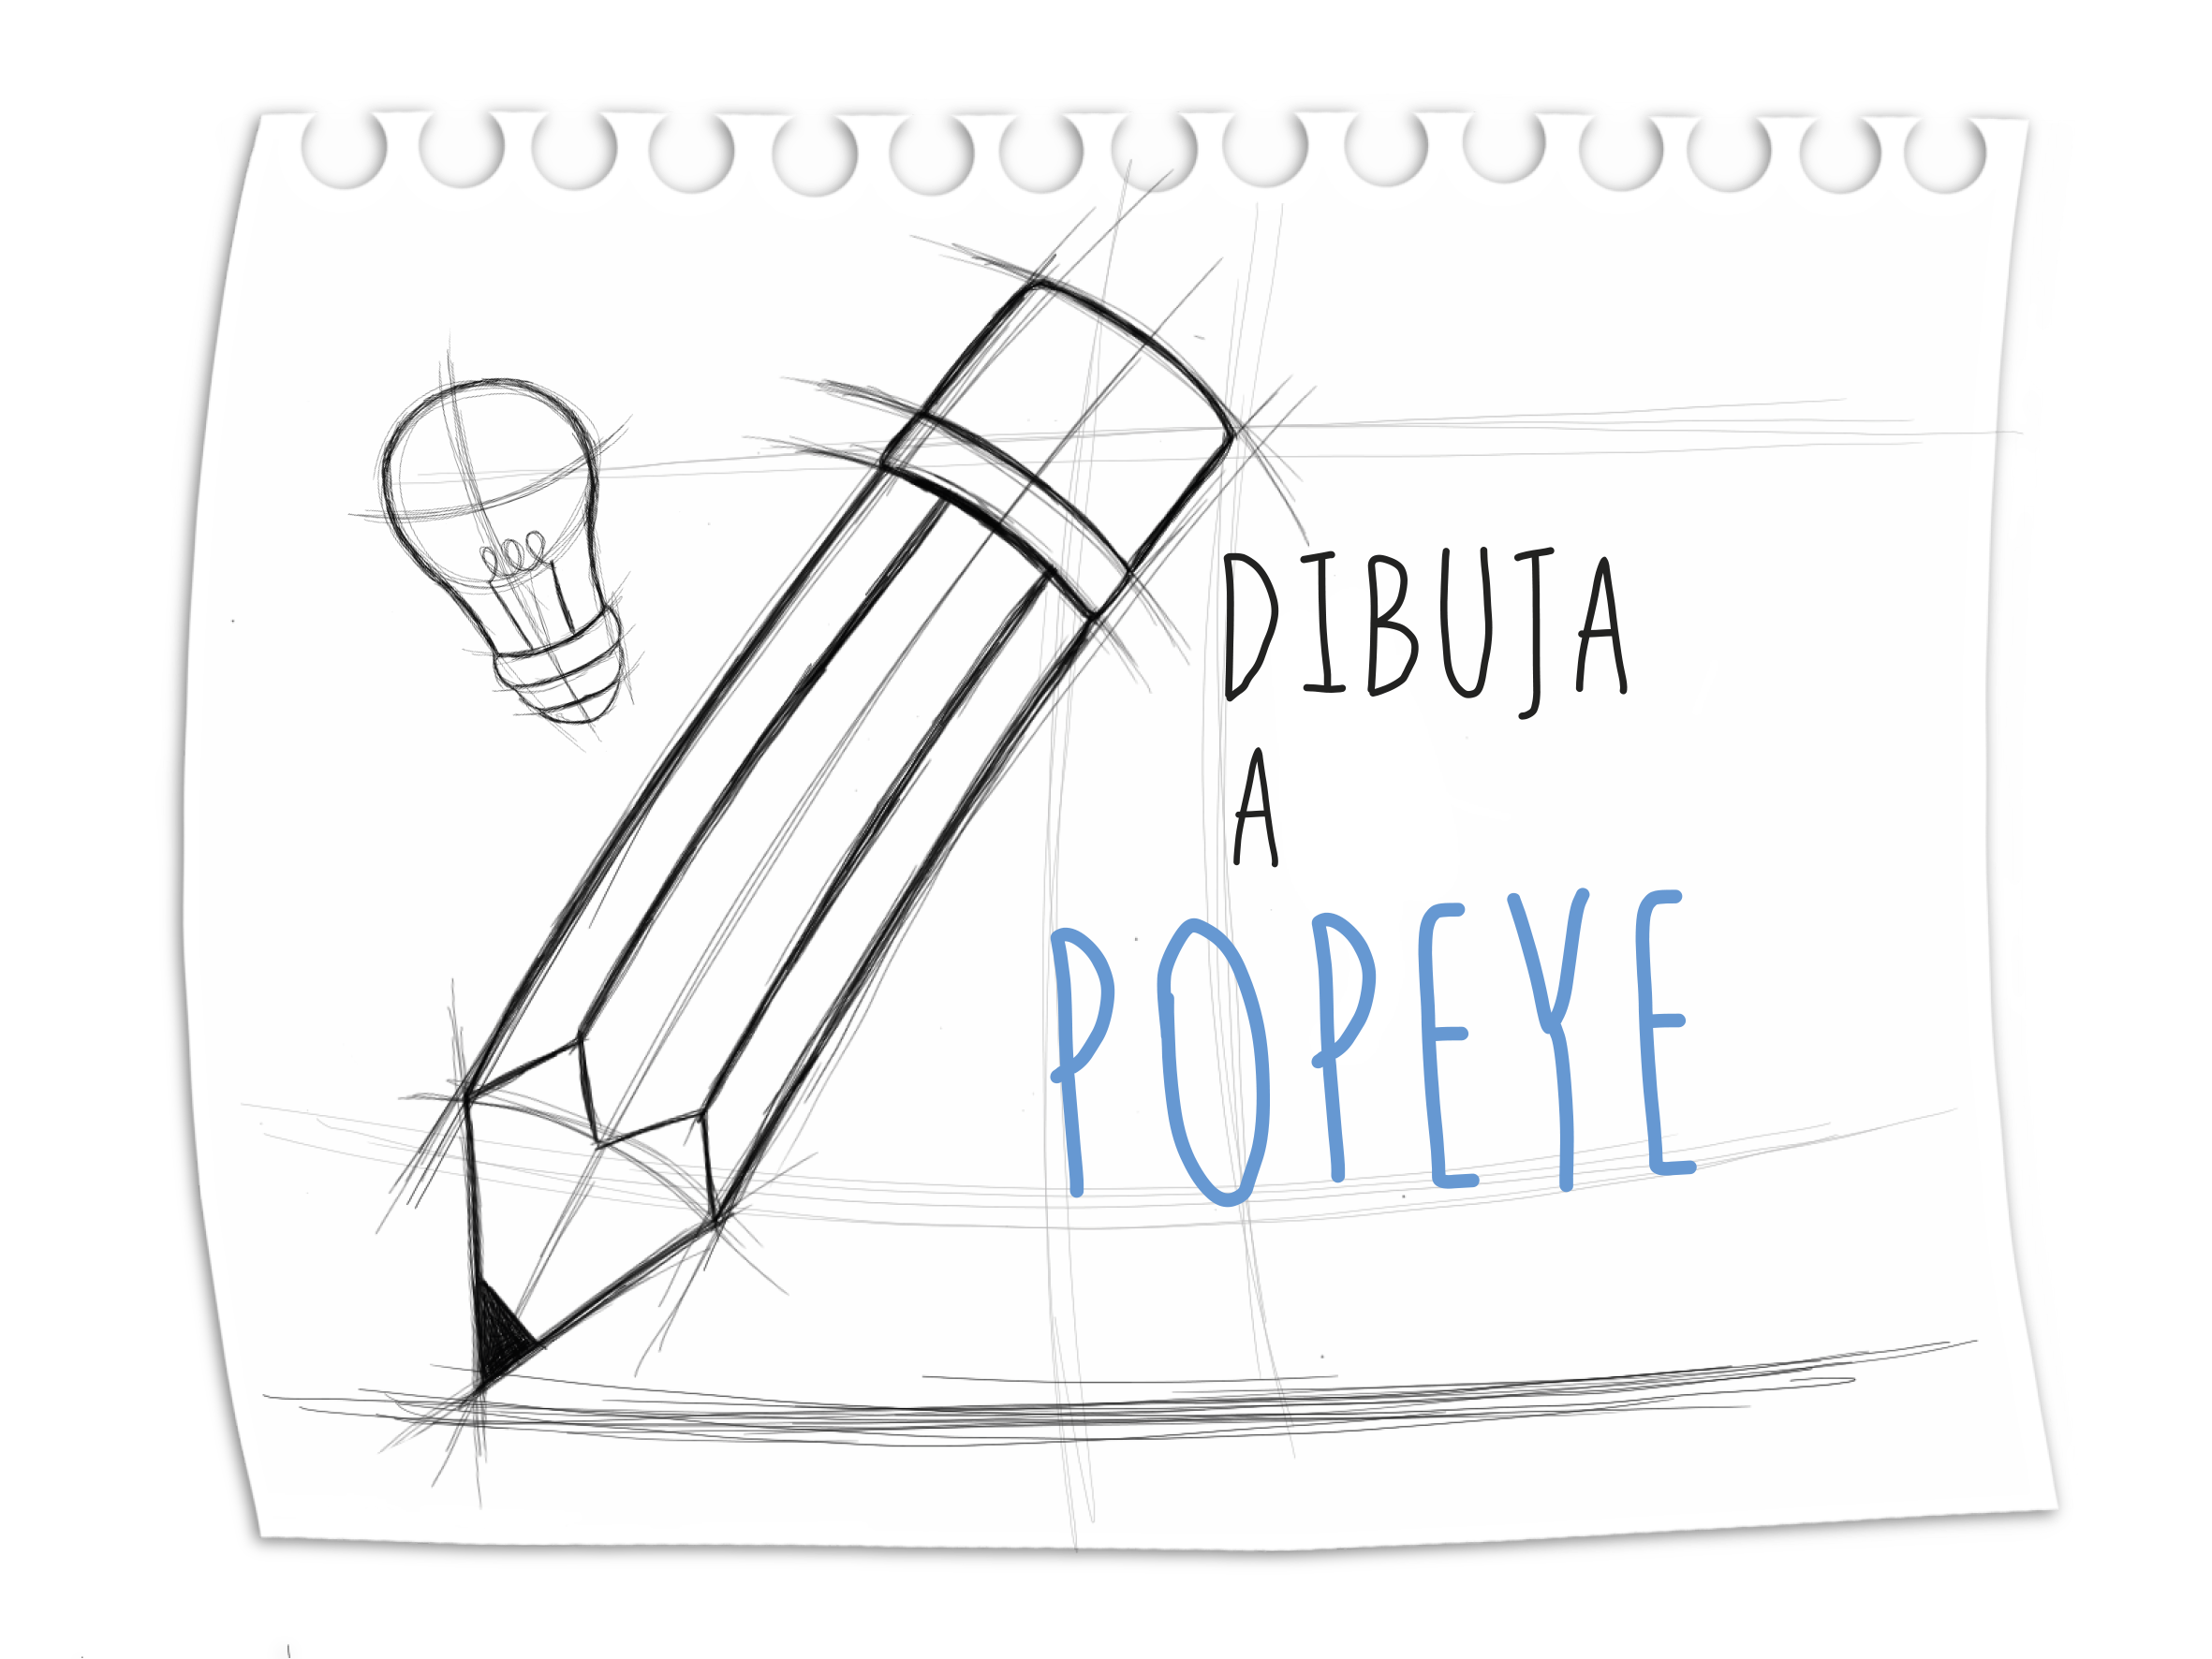 DIBUJA
A
POPEYE